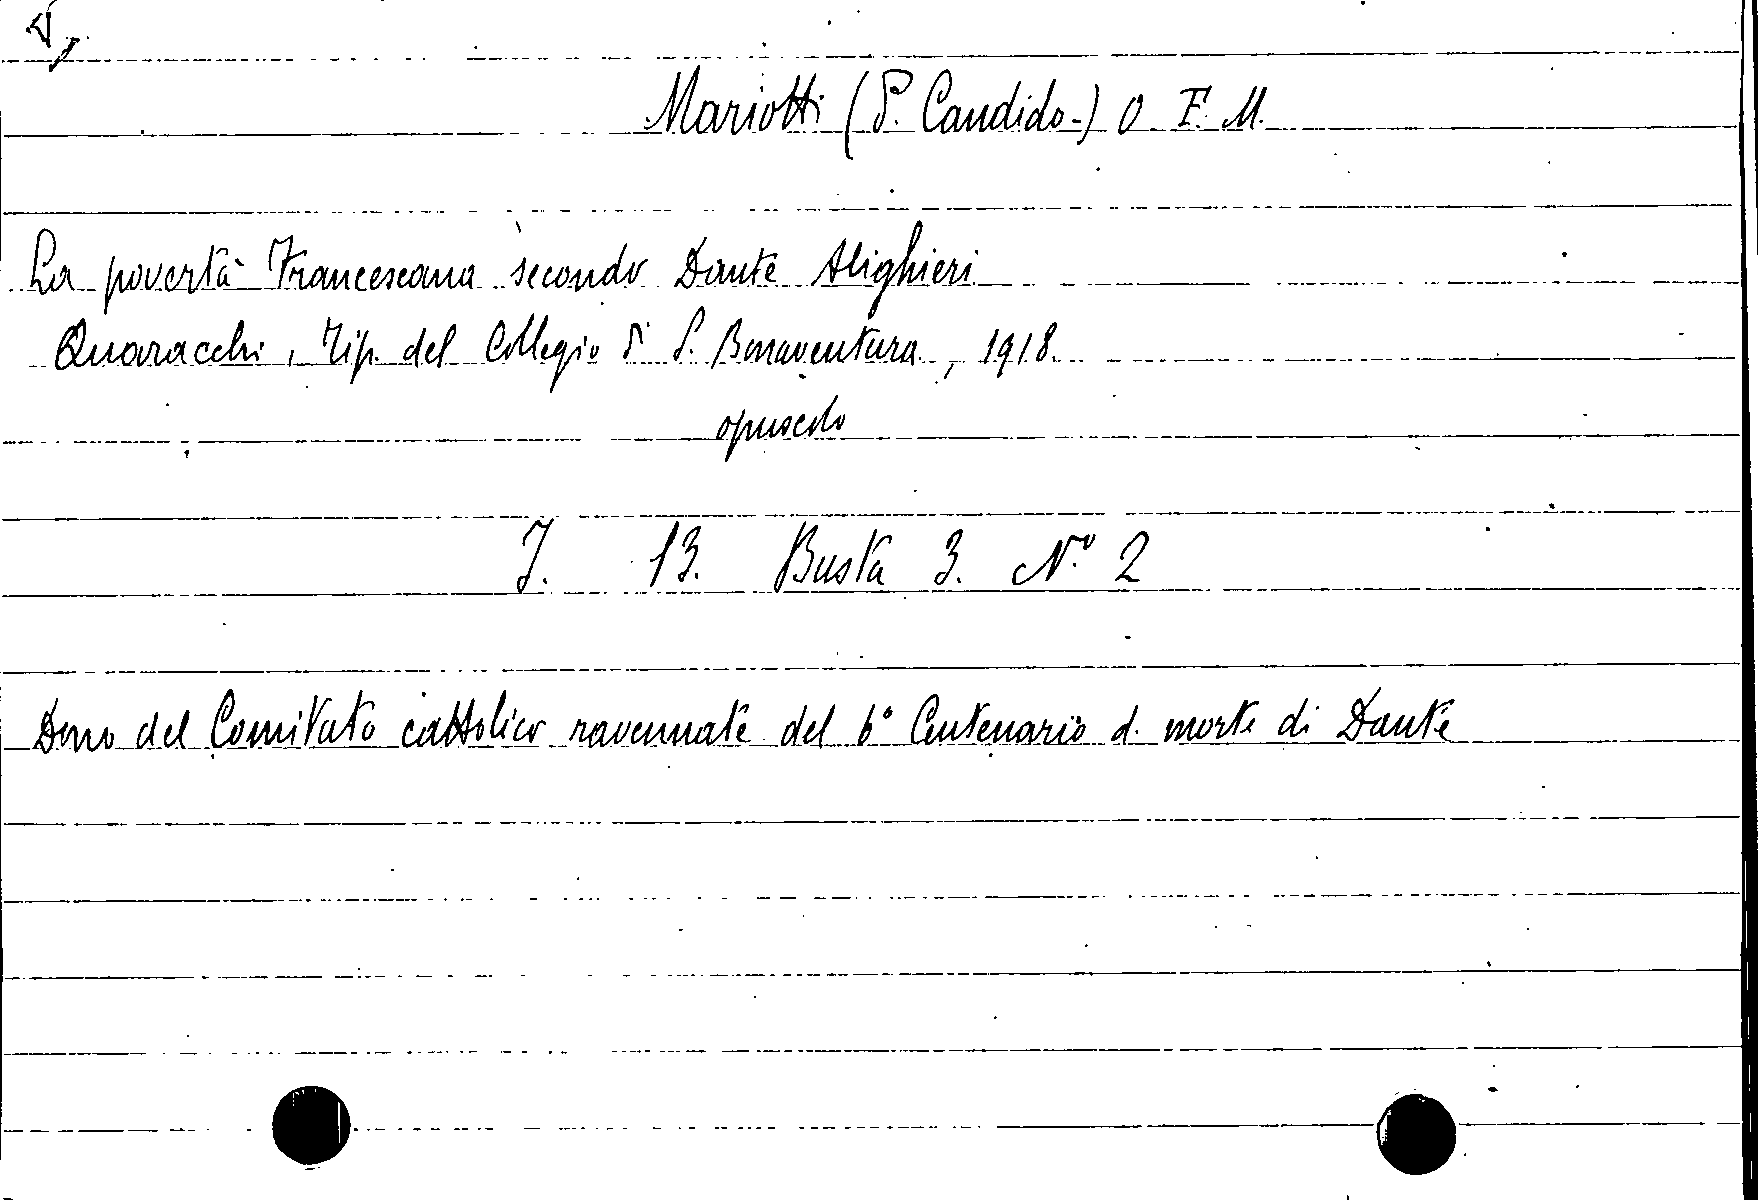 Mariotti (P. Candido-) O. F. M.
La povertà Francescana secondo Dante Alighieri
Quaracchi, Tip. del Collegio di S. Bonaventura, 1918.
opuscolo
J. 13. Busta 3. N.º 2
Dono del Comitato cattolico ravennate del 6º Centenario d. morte di Dante